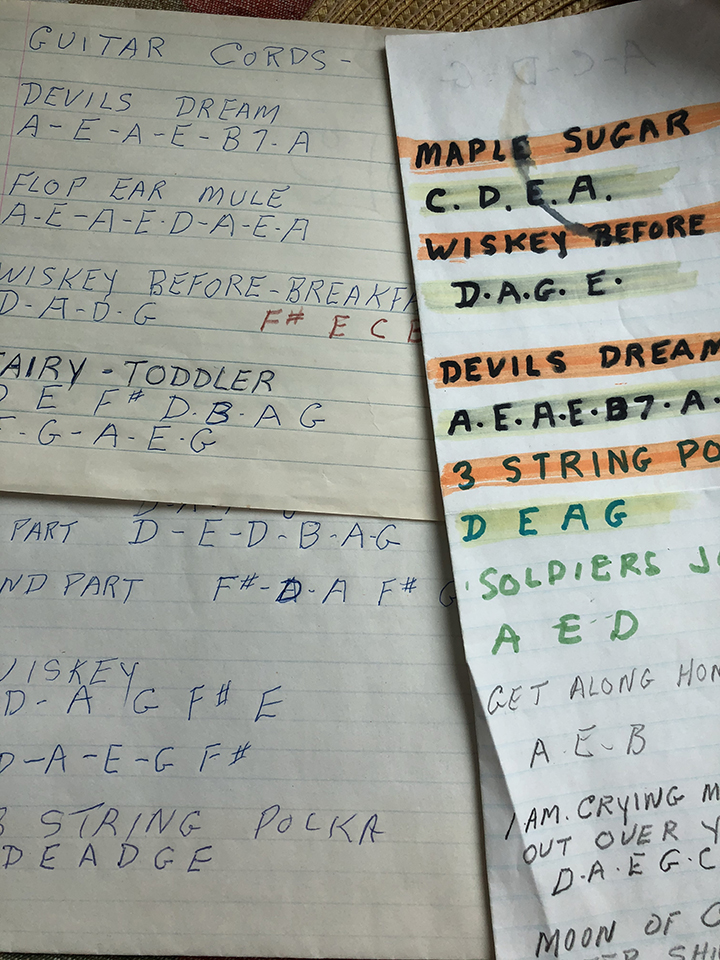 GUITAR CORDS-
DEVILS DREAM
A-E-A-E-B7-A
FLOP EAR MULE
A-E-A-E-D-A-E-A
WISKEY BEFORE-BREAKFA
D-A-D-G F# E C
FAIRY-TODDLER
D E F# D-B-A G
E-G-A-E-G
PART D-E-D-B-A-G
ND PART F#-D-A F# G
WISKEY
D-A G F# E
D-A-E-G F#
3 STRING POLKA
D E A D G E
MAPLE SUGAR
C. D. E. A.
WISKEY BEFORE
D.A.G. E.
DEVILS DREAM
A.E.A.E.B7.A.
3 STRING PO
D E A G
SOLDIERS JO
A E D
GET ALONG HOM
A.E-B
I AM. CRYING M
OUT OVER Y
D.A.E G.C
MOON OF C